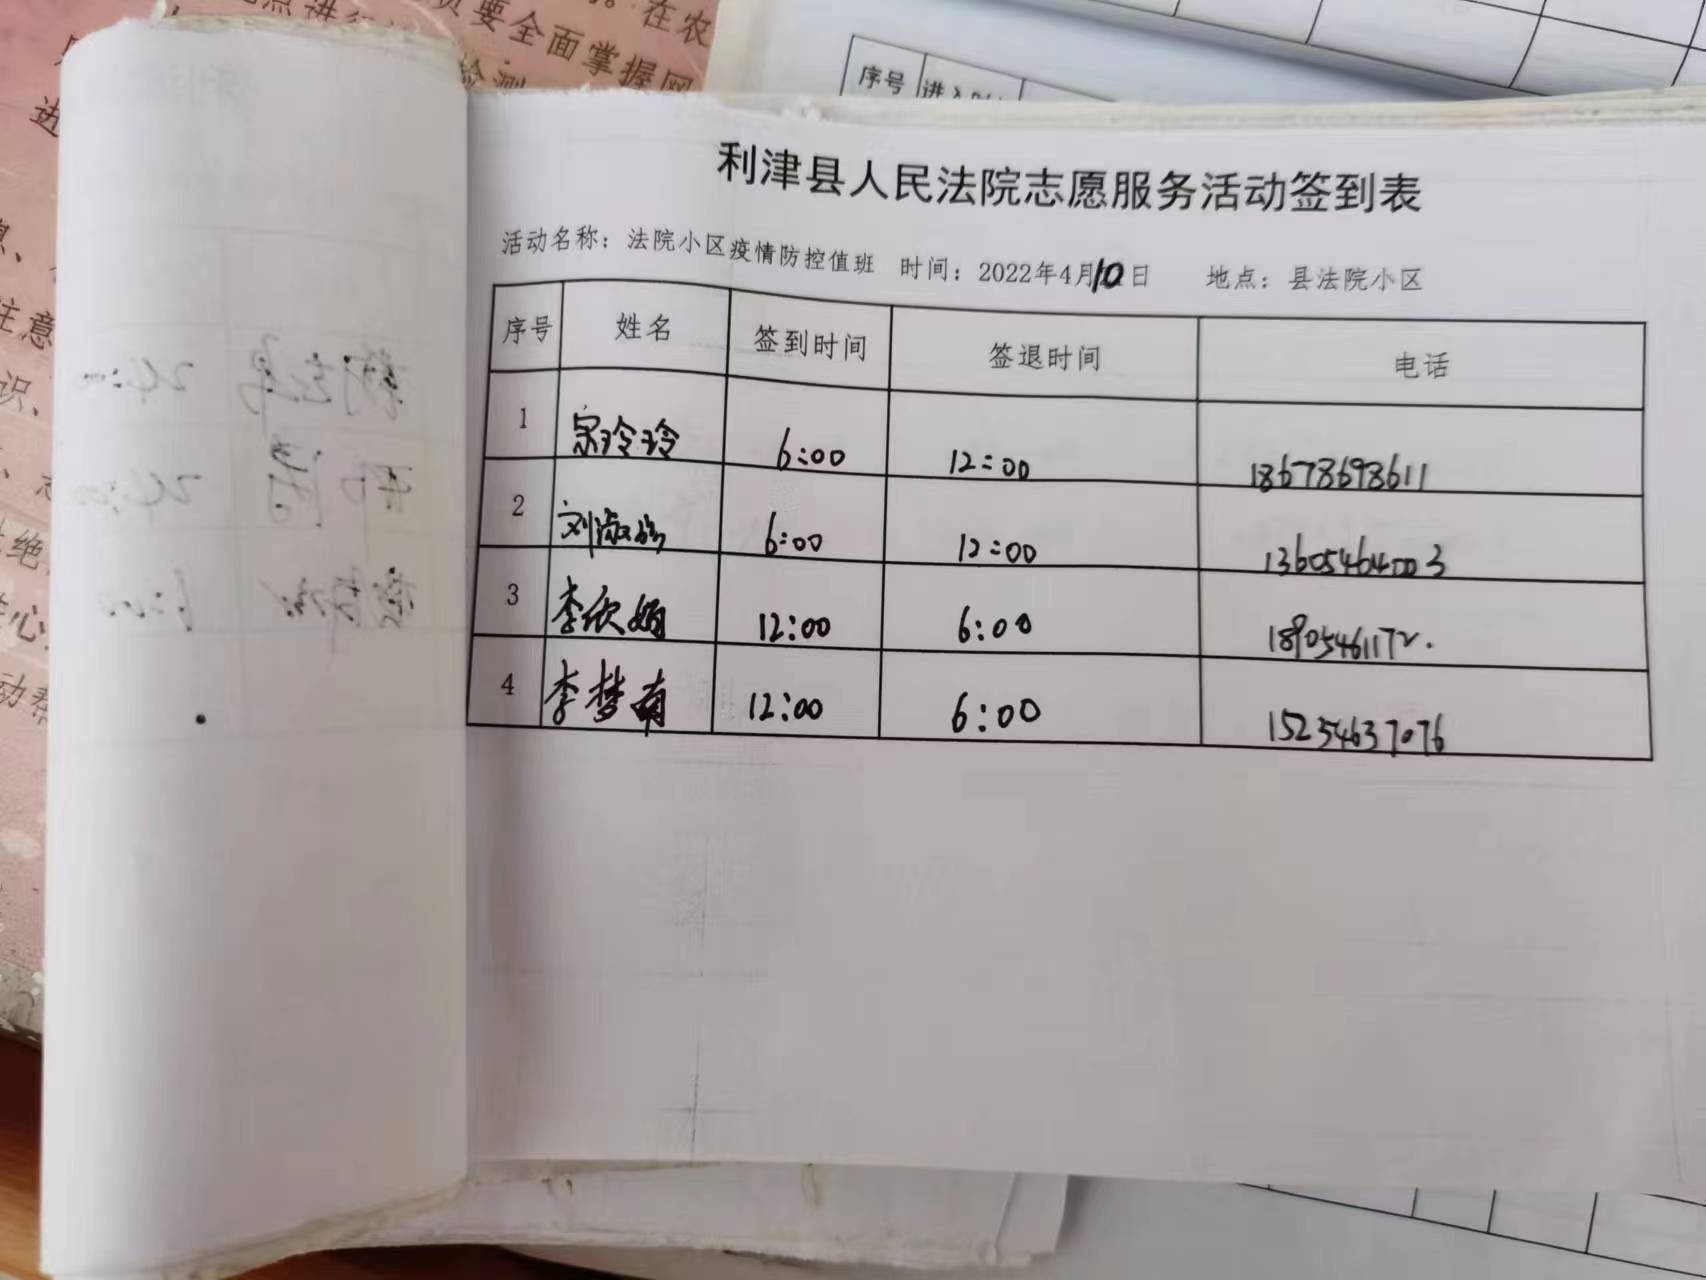 利津县人民法院志愿服务活动签到表
活动名称：法院小区疫情防控值班 时间：2022年4月10日 地点：县法院小区
序号 姓名 签到时间 签退时间 电话
1 宋玲玲 6:00 12:00 18678698611
2 刘淑 6:00 12:00 13605464003
3 李欣娟 12:00 6:00 18905461172.
4 李梦南 12:00 6:00 15254637076
序号
在农
要全面掌握网
注意
识、